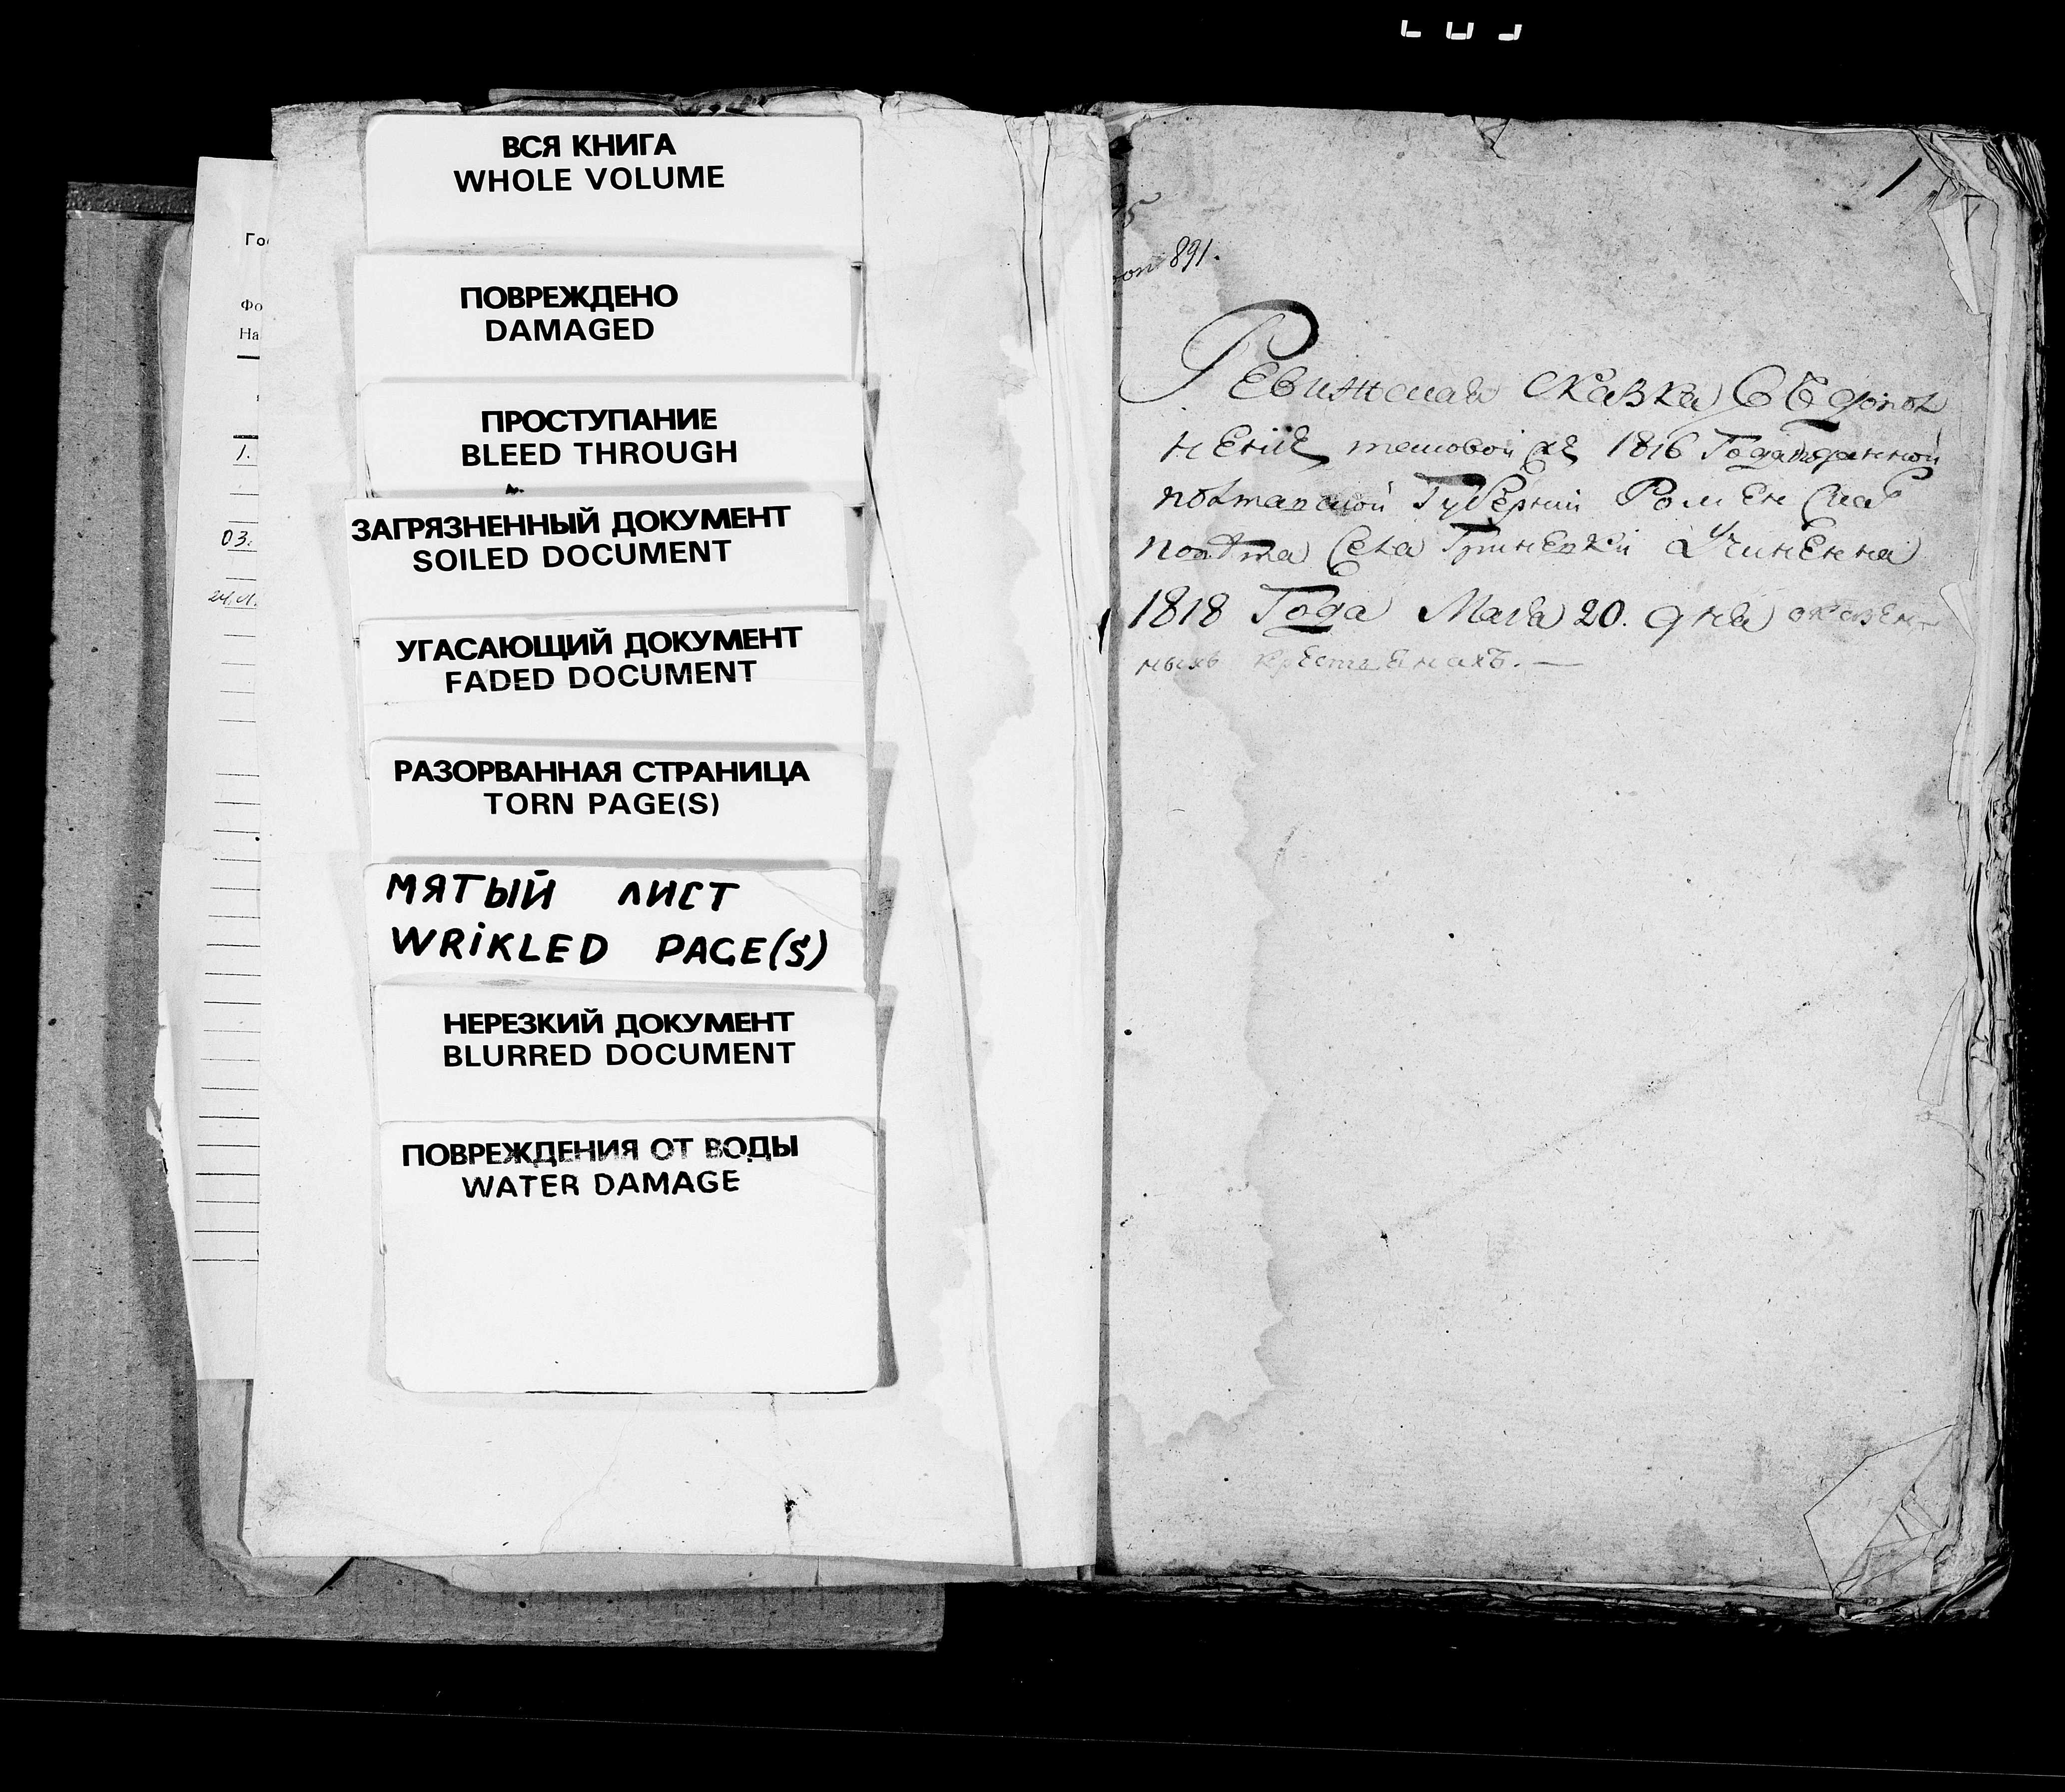 ВСЯ КНИГА
WHOLE VOLUME
ПОВРЕЖДЕНО
DAMAGED
ПРОСТУПАНИЕ
BLEED THROUGH
ЗАГРЯЗНЕННЫЙ ДОКУМЕНТ
SOILED DOCUMENT
УГАСАЮЩИЙ ДОКУМЕНТ
FADED DOCUMENT
РАЗОРВАННАЯ СТРАНИЦА
TORN PAGE(S)
МЯТЫЙ ЛИСТ
WRIKLED PAGE(S)
НЕРЕЗКИЙ ДОКУМЕНТ
BLURRED DOCUMENT
ПОВРЕЖДЕНИЯ ОТ ВОДЫ
WATER DAMAGE
Го
Фо
На
1.
03.
1
891.
Ревижская сказка въ допол
неніе 1816 Года поданной
полтавской Губерніи Роменскаго
Села Учиненна
1818 Года Маия 20. дня оказен
ныхъ крестьянахъ.